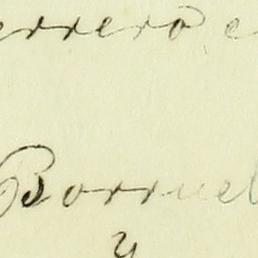 errero e
Borruel
y